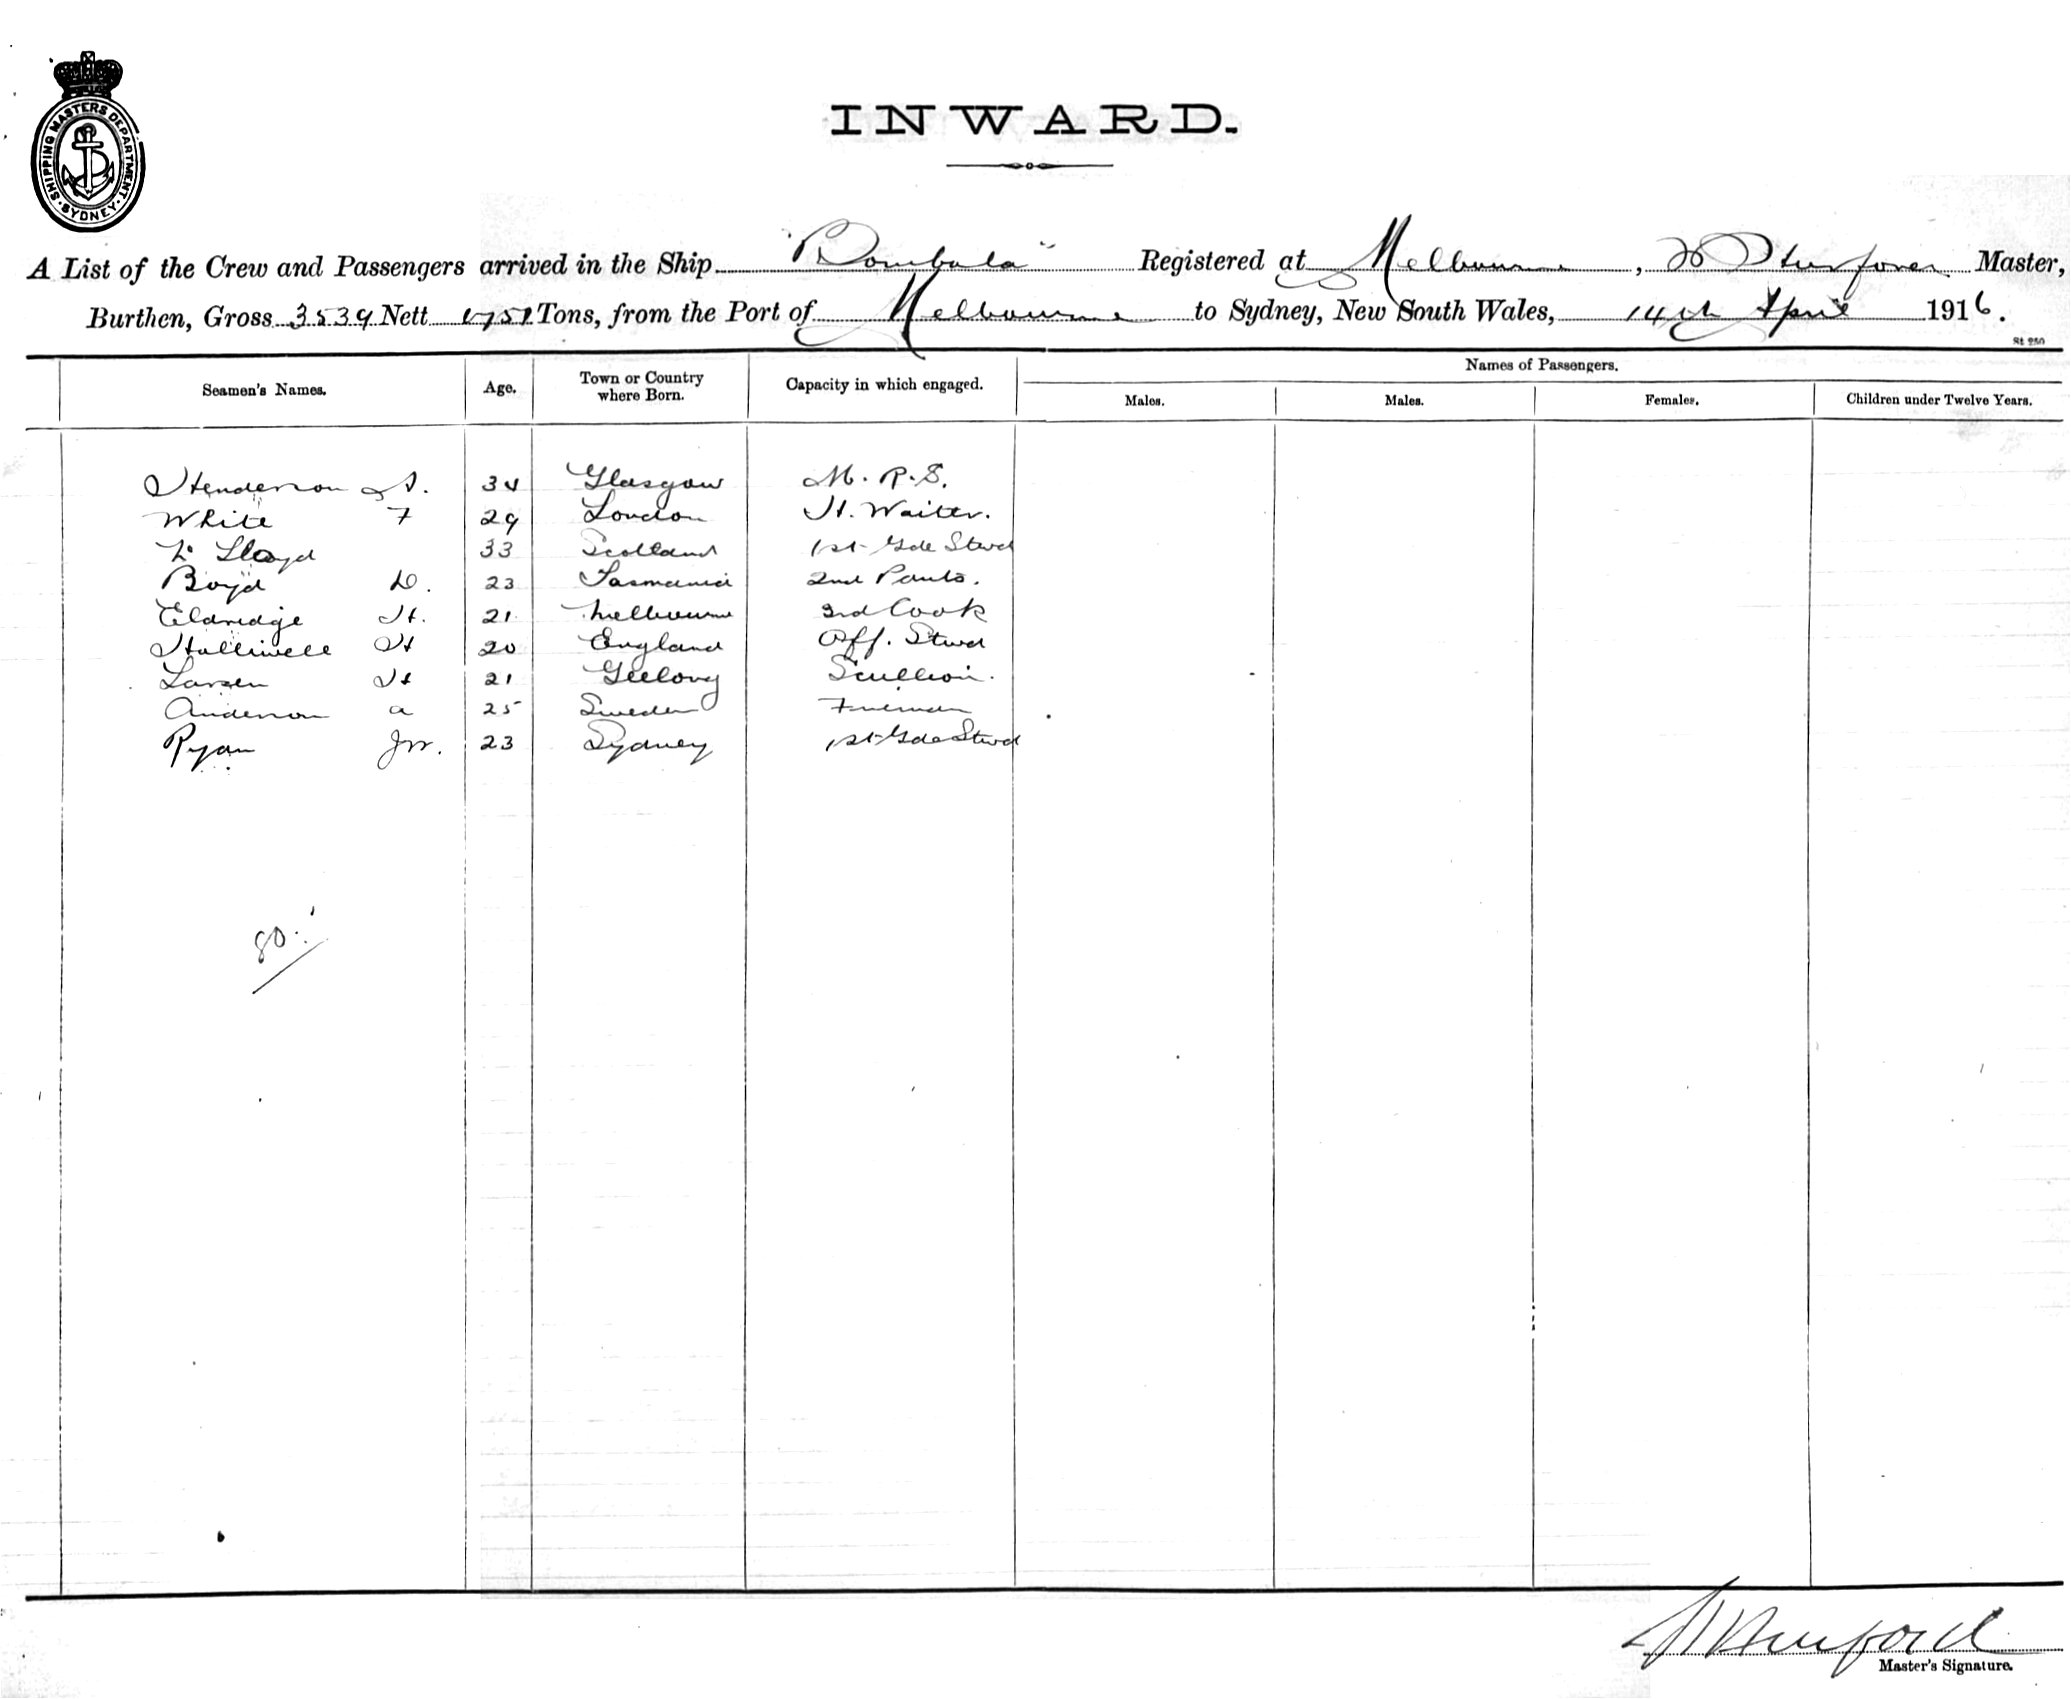 SHIPPING MASTERS DEPARTMENT · SYDNEY ·
INWARD.
A List of the Crew and Passengers arrived in the Ship "Bombala" Registered at Melbourne, Master,
Burthen, Gross 3539 Nett Tons, from the Port of Melbourne to Sydney, New South Wales, 14th April 1916.
St 250
Seamen's Names. Age. Town or Country where Born. Capacity in which engaged. Names of Passengers.
Males. Males. Females. Children under Twelve Years.
Henderson 34 Glasgow M. R. S.
White F 29 London H. Waiter.
Lloyd 33 Scotland 1st Gde Stwd
Boyd D. 23 Tasmania 2nd Pants.
Eldridge H. 21 Melbourne 3rd Cook
Halliwell H 20 England Off. Stwd
Larsen H 21 Geelong Scullion.
Anderson A 25 Sweden Fireman
Ryan Jm. 23 Sydney 1st Gde Stwd
80
Master's Signature.